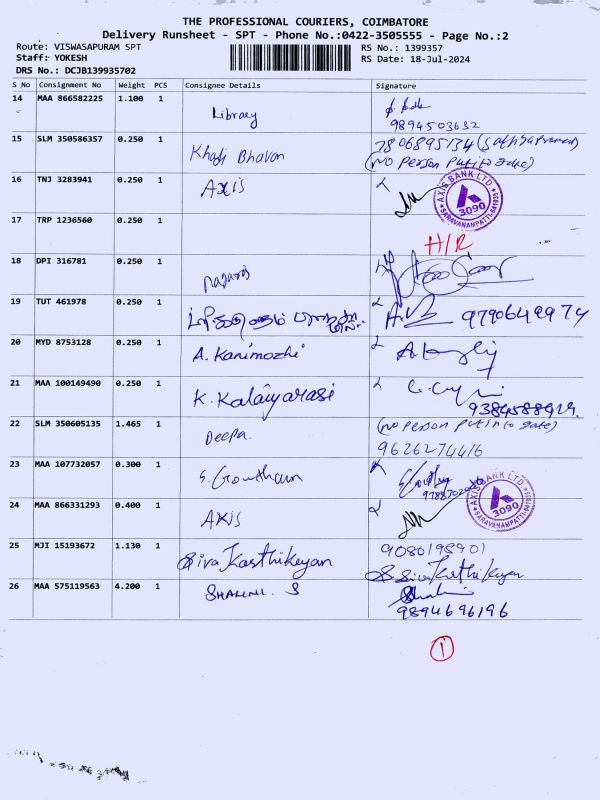 THE PROFESSIONAL COURIERS, COIMBATORE
Delivery Runsheet - SPT - Phone No.:0422-3505555 - Page No.:2
Route: VISWASAPURAM SPT
Staff: YOKESH
DRS No.: DCJB139935702
RS No.: 1399357
RS Date: 18-Jul-2024
S No Consignment No Weight PCS Consignee Details Signature
14 MAA 866582225 1.100 1 Library
9894503632
15 SLM 350586357 0.250 1 Khadi Bhavan 7806895134
(No Person Put into gate)
16 TNJ 3283941 0.250 1 Axis
AXIS BANK LTD
3090
SARAVANAMPATTI-641035
17 TRP 1236560 0.250 1
H/R
18 DPI 316781 0.250 1 nagaraj
19 TUT 461978 0.250 1 9790649974
20 MYD 8753128 0.250 1 A. Kanimozhi
21 MAA 100149490 0.250 1 K. Kalaiyarasi
22 SLM 350605135 1.465 1 Deepa (No Person Put into gate)
9626274416
23 MAA 107732057 0.300 1 S. Goutham
24 MAA 866331293 0.400 1 Axis
AXIS BANK LTD
3090
SARAVANAMPATTI-641035
25 MJI 15193672 1.130 1 Siva Karthikeyan 9080198901
Siva Karthikeyan
26 MAA 575119563 4.200 1 SHALINI. S
9894696196
1